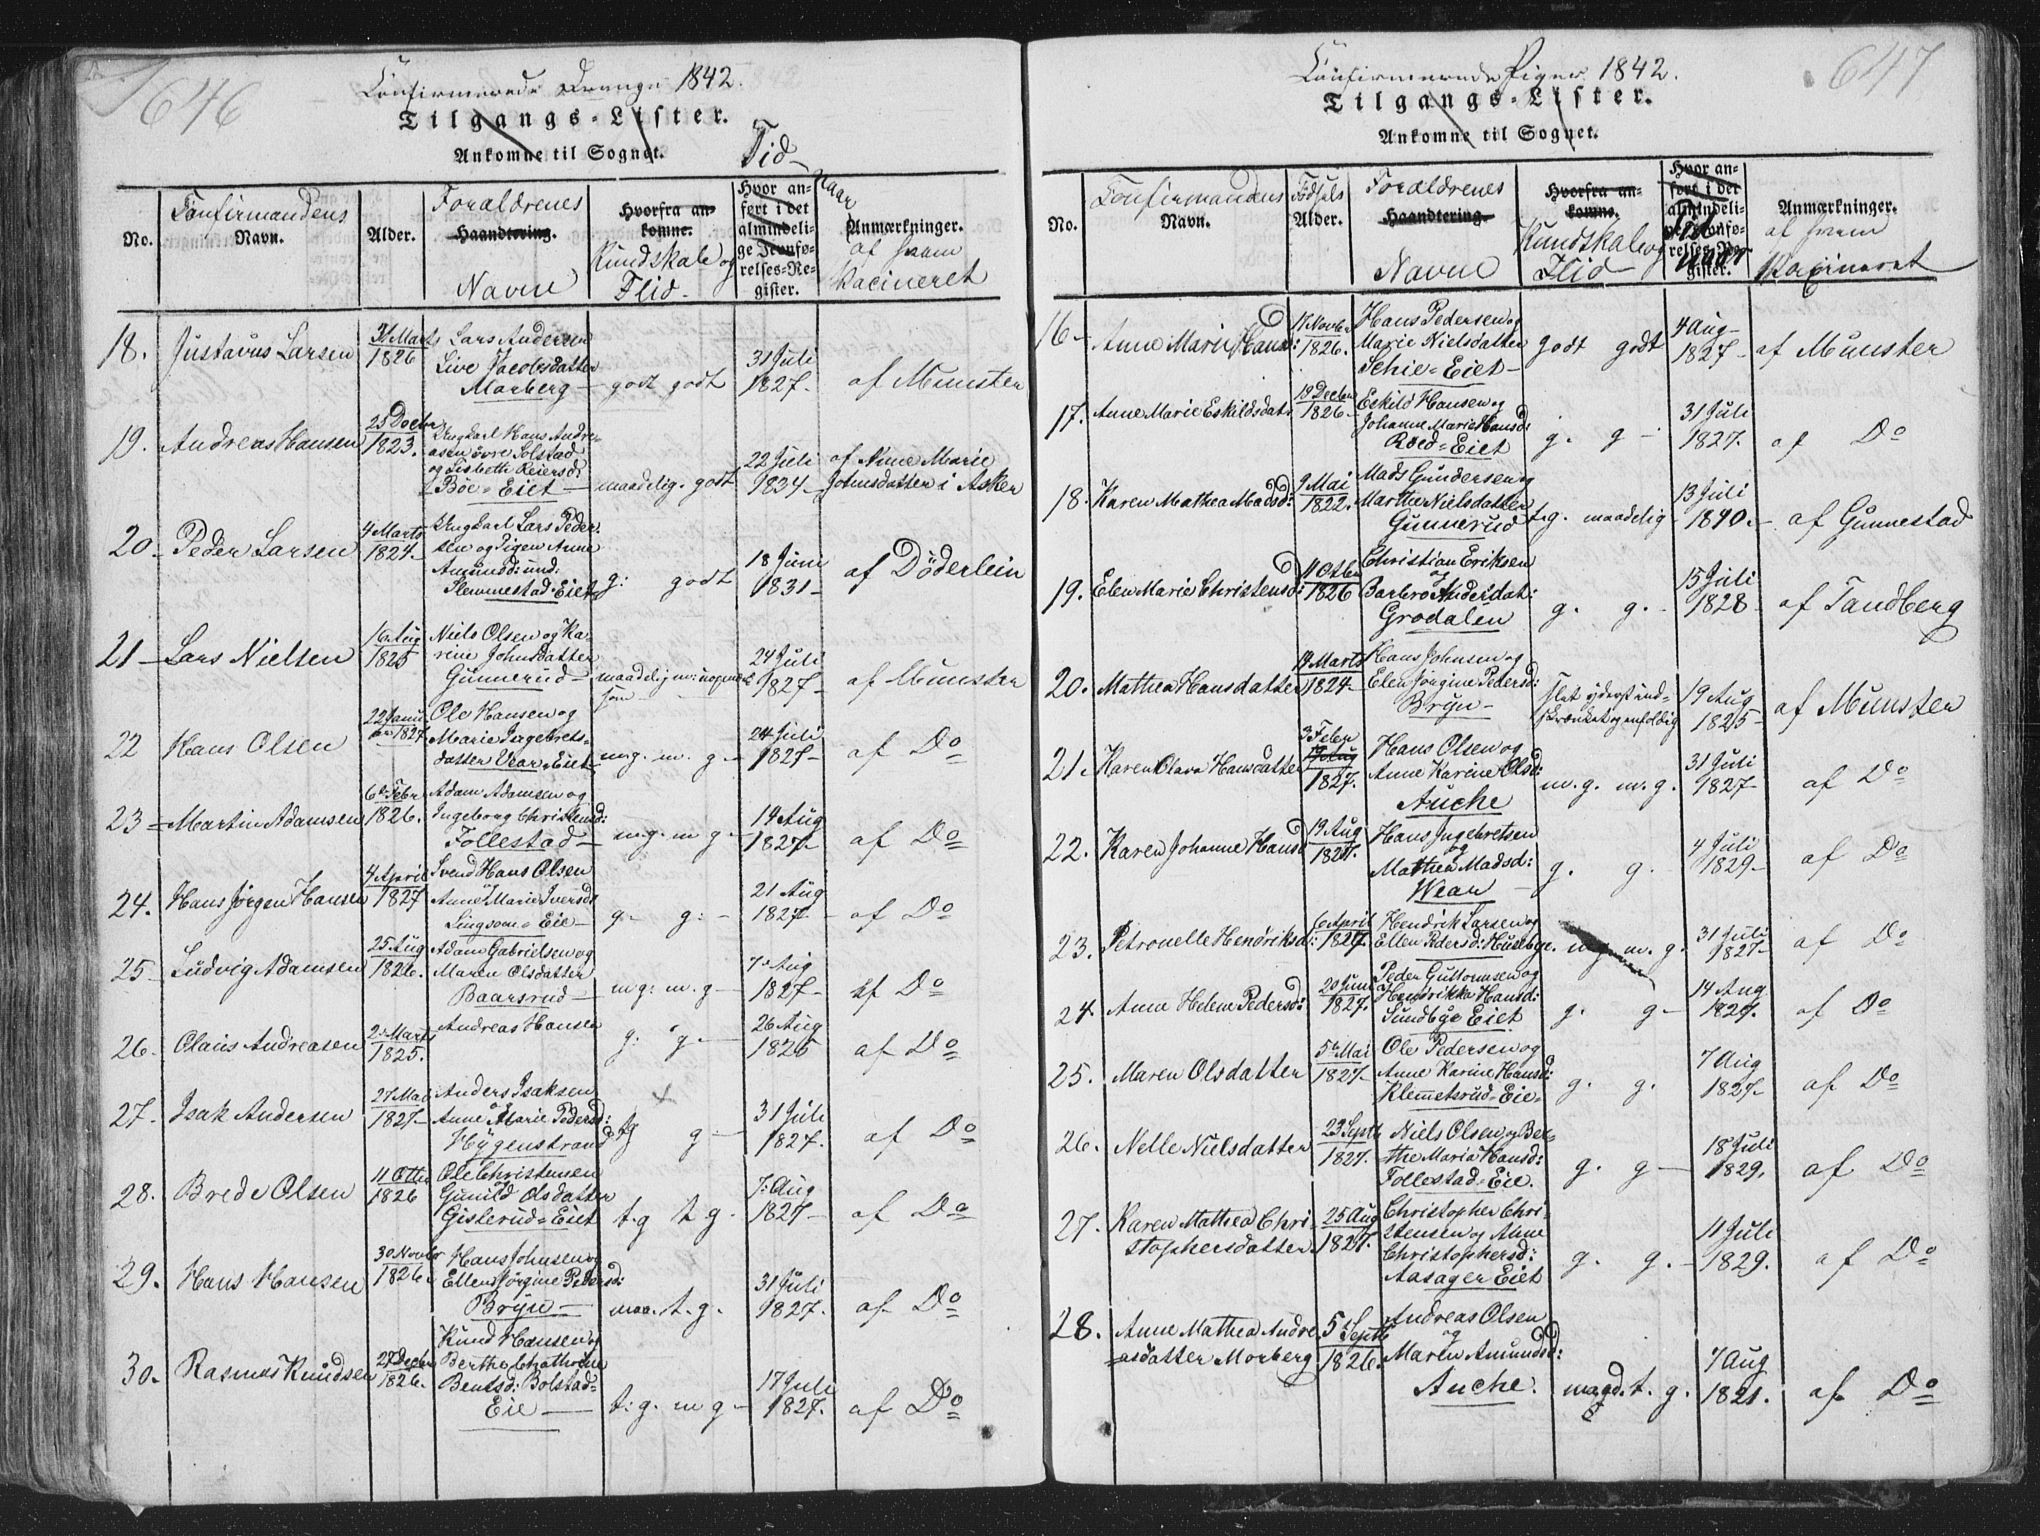 646
Confirmerede Drenge 1842.
Tilgangs-Lister.
Ankomne til Sognet.
Tid
naar
No.
Confirmandens
Navn.
Alder.
Forældrenes
Haandtering.
Navne
Hvorfra an-
komne.
Kundskab og
Flid.
Hvor an-
ført i det
almindeli-
ge Jevnfø-
relses-Re-
gister.
Anmærkninger.
af hvem
Vacineret
18. Justavus Larsen
31 Marts
1826
Lars Andersen
Live Jacobsdatter
Morberg
godt godt
31 Juli
1827.
af Munster
19. Andreas Hansen
25 Decbr
1823.
Ungkarl Hans Andre-
asen øvre Solstad
og Lisbeth Reiersd:
Böe-Eiet
maadelig. godt
22 Juli
1834
af Anne Marie
Johnsdatter i Asker
20 Peder Larsen
4 Marts
1824
Ungkarl Lars Peder-
sen og Pigen Anne
Amundsd: und:
Slemmestad-Eiet
g: godt
18 Juni
1831
af Döderlein
21 Lars Nielsen
16 Aug
1825
Niels Olsen og Ka-
rine Johnsdatter
Gunnerud
maadelig m: uopmærk
som
24 Juli
1827
af Munster
22 Hans Olsen
22 Janu
ar 1827
Ole Hansen og
Marie Ingebrets-
datter Vear-Eiet
m.g. m. g.
24 Juli
1827
af Do
23 Martin Adamsen
6 Febr
1826.
Adam Adamsen og
Ingeborg Christensd:
Follestad
m.g. m g
14 Aug
1827
af Do
24. Hans Jörgen Hansen
4 April
1827
Svend Hans Olsen
Anne Marie Iversd:
Lingsom-Eie
g. g:
21 Aug
1827
af Do
25 Ludvig Adamsen
25 Aug
1826.
Adam Gabrielsen og
Maren Olsdatter
Baarsrud
m g: m. g
7 Aug
1827
af Do
26. Claus Andreasen
2 Marts
1825.
Andreas Hansen
g: g.
26 Aug
1825
af Do
27. Isak Andersen
27 Mai
1827
Anders Isaksen
og
Anne Marie Pedersd:
Hÿgenstrand
tg g
31 Juli
1827.
af Do
28. Brede Olsen
11 Octbr
1826
Ole Christensen
Gunild Olsdatter
Gisterud-Eiet
t.g t. g.
7 Aug
1827
af Do
29. Hans Hansen
30 Novbr
1826
Hans Johnsen og
Ellen Jörgine Pedersd:
Brÿn
maa. t. g.
31 Juli
1827.
af Do
30. Rasmus Knudsen
27 Decbr
1826.
Knud Hansen og
Berthe Cathrine
Bentsd: Bolstad-
Eie
t: g. m g
17 Juli
1827.
af Do
647
Confirmerede Piger 1842.
Tilgangs-Lister.
Ankomne til Sognet.
No.
Confirmandens
Navn.
Födsels
Alder.
Forældrenes
Haandtering.
Navne
Hvorfra an-
komne.
Kundskab og
Flid
Hvor an-
ført i det
almindeli-
ge Jevnfø-
relses-Re-
gister.
Tid
naar
Anmærkninger.
af hvem
Vacineret
16 Anne Marie Hansd:
Novbr
1826.
Hans Pedersen og
Marie Nielsdatter
Schie-Eiet
godt godt
4 Aug
1827
af Munster
17. Anne Marie Eskildsdatr
18 Decbr
1826
Eskild Hansen og
Johanne Marie Hansd:
Roed-Eiet
g. g
31 Juli
1827.
af Do
18. Karen Mathea Madsd:
9 Mai
1822.
Mads Gundersen og
Marthe Nielsdatter
Gunnerud
t.g. maadelig
13 Juli
1840.
af Gunnestad
19. Elen Marie Christensd:
11 Octbr
1826
Christian Eriksen
og
Barbro Andersdat:
Grodalen
g. g.
15 Juli
1828
af Tandberg
20. Mathea Hansdatter
14 Marts
1824
Hans Johnsen og
Elen Jörgine Pedersd:
Brÿn
Slet yderst ind-
skrænket og enfoldig
19 Aug
1825
af Munster
21. Karen Olava Hansdatter
3 Febr
19 Aug
1827.
Hans Olsen og
Anne Karine Olsd:
Auche
m. g. m. g.
31 Juli
1827
af Do
22. Karen Johanne Hansd
19 Aug
1827.
Hans Ingebretsen
og
Mathea Madsd:
Wear
g. g.
4 Juli
1829
af Do
23. Petronelle Hendriksd:
6 April
1827.
Hendrik Larsen og
Ellen Pedersd: Husebye.
m.g. m. g.
31 Juli
1827
af Do
24. Anne Helene Pedersd:
20 Juni
1827.
Peder Guttormsen og
Hendrikka Hansd:
Sundbye Eiet
g. g
14 Aug
1827.
af Do
25. Maren Olsdatter
5 Mai
1827
Ole Pedersen og
Anne Karine Hansd:
Klemetsrud-Eie
g. g.
7 Aug
1827
af Do
26. Nelle Nielsdatter
23 Septb
1827.
Niels Olsen og Ber-
the Maria Hansd:
Follestad-Eie.
g. g
18 Juli
1829.
af Do
27. Karen Mathea Chri-
stophersdatter
25 Aug
1827.
Christopher Chri-
stensen og Anne
Christophersd:
Aasager Eiet
g. g.
11 Juli
1829.
af Do
28. Anne Mathea Andre
asdatter Morberg
5 Septb
1826.
Andreas Olsen
og
Maren Amundsd:
Auche.
magd. t. g.
7 Aug
1821.
af Do